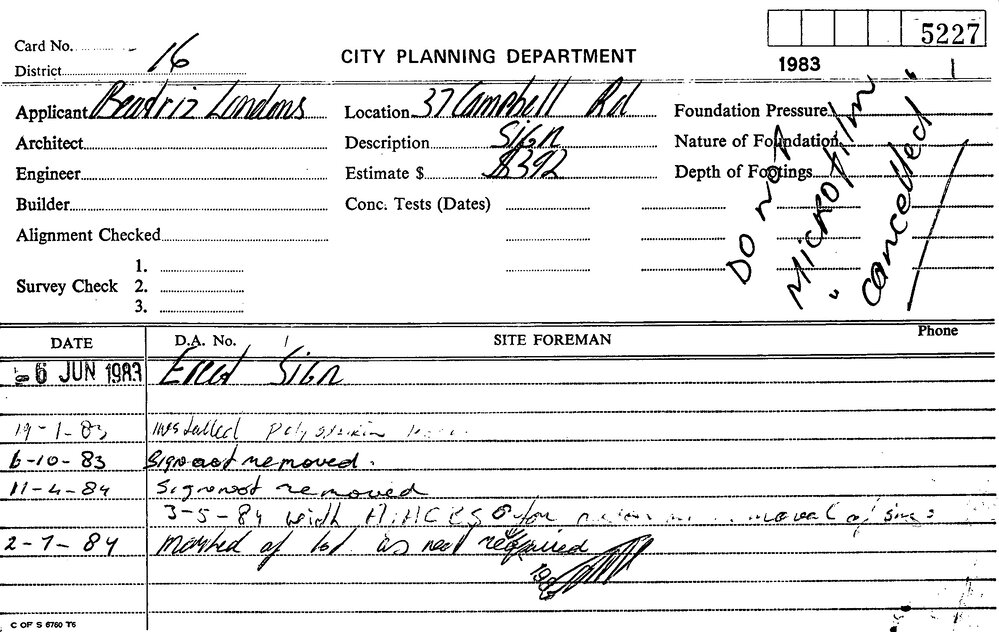 5227
Card No.
District 16
CITY PLANNING DEPARTMENT
1983
Applicant Beatriz Londons
Location 37 Campbell Rd
Foundation Pressure
Architect
Description Sign
Nature of Foundation
Engineer
Estimate $ $392
Depth of Footings
Builder
Conc. Tests (Dates)
Alignment Checked
Survey Check
1.
2.
3.
DO NOT
MICROFILM
"cancelled"
DATE
D.A. No.
SITE FOREMAN
Phone
6 JUN 1983 Erect Sign
19-1-83 installed
6-10-83 Sign not removed.
11-4-84 Sign not removed
3-5-84 with for removal of
2-7-84 of as not required
C OF S 6760 T6